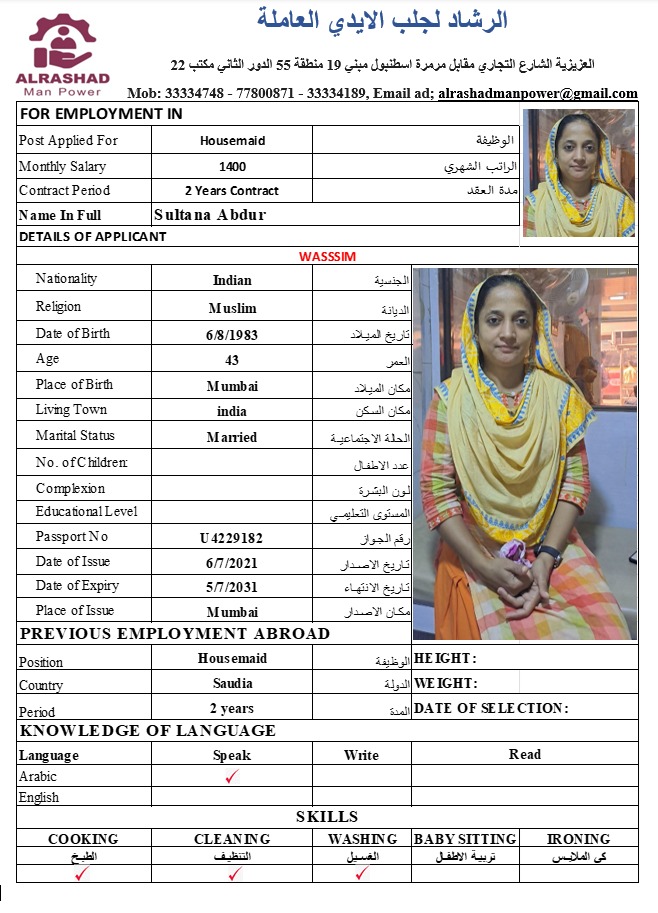 الرشاد لجلب الايدي العاملة
العزيزية الشارع التجاري مقابل مرمرة اسطنبول مبني 19 منطقة 55 الدور الثاني مكتب 22
ALRASHAD
Man Power
Mob: 33334748 - 77800871 - 33334189, Email ad; alrashadmanpower@gmail.com
FOR EMPLOYMENT IN
Post Applied For Housemaid الوظيفة
Monthly Salary 1400 الراتب الشهري
Contract Period 2 Years Contract مدة العقد
Name In Full Sultana Abdur
DETAILS OF APPLICANT
WASSSIM
Nationality Indian الجنسية
Religion Muslim الديانة
Date of Birth 6/8/1983 تاريخ الميلاد
Age 43 العمر
Place of Birth Mumbai مكان الميلاد
Living Town india مكان السكن
Marital Status Married الحالة الاجتماعية
No. of Children: عدد الاطفال
Complexion لون البشرة
Educational Level المستوى التعليمي
Passport No U4229182 رقم الجواز
Date of Issue 6/7/2021 تاريخ الاصدار
Date of Expiry 5/7/2031 تاريخ الانتهاء
Place of Issue Mumbai مكان الاصدار
PREVIOUS EMPLOYMENT ABROAD
Position Housemaid الوظيفة HEIGHT:
Country Saudia الدولة WEIGHT:
Period 2 years المدة DATE OF SELECTION:
KNOWLEDGE OF LANGUAGE
Language Speak Write Read
Arabic ✓
English
SKILLS
COOKING CLEANING WASHING BABY SITTING IRONING
الطبخ التنظيف الغسيل تربية الاطفال كى الملابس
✓ ✓ ✓